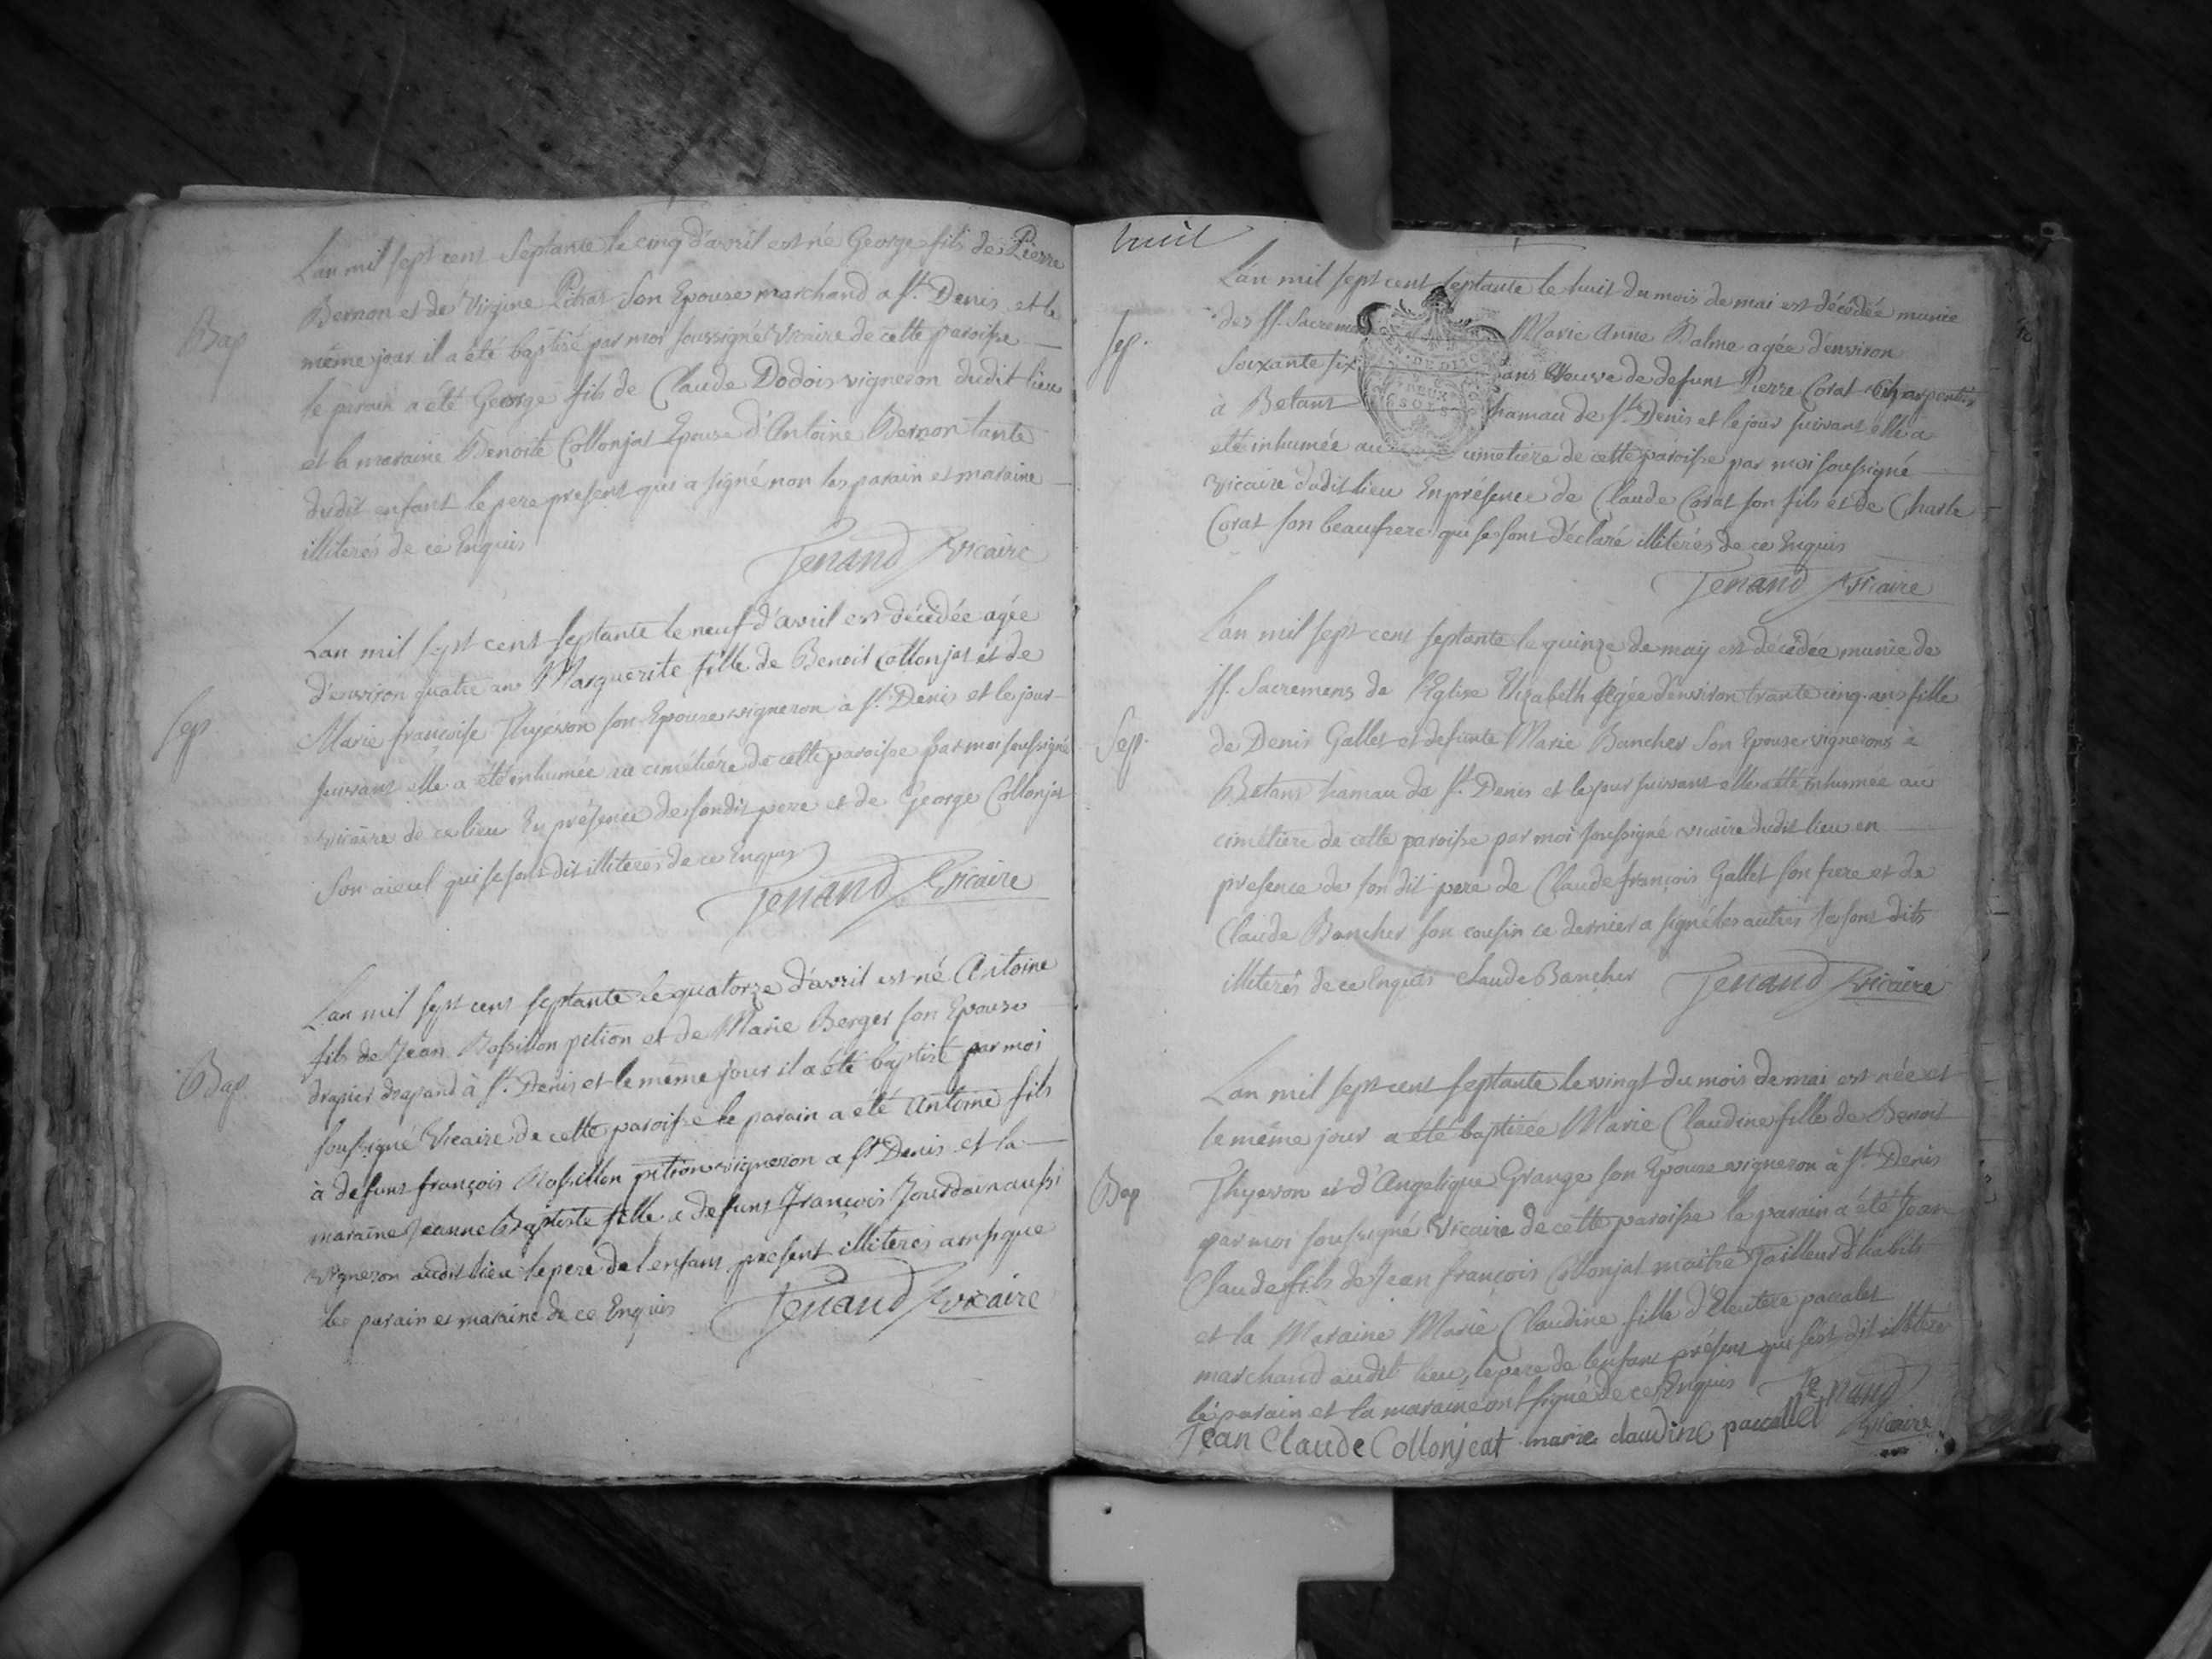 L'an mil sept cent septante le cinq d'avril est né George fils de Pierre
Bernon et de Virgine Pitrat son Epouse marchand a St. Denis et le
Bap
même jour il a été baptisé par moi soussigné Vicaire de cette paroisse
le parain a été George fils de Claude Dodois vigneron dudit lieu
et la maraine Benoite Collonjat Epouse d'Antoine Bernon tante
dudit enfant le pere present qui a signé non les parain et maraine
illiterés de ce Enquis
Tenand Vicaire
L'an mil sept cent septante le neuf d'avril est décédée agée
d'environ quatre ans Marguerite fille de Benoit Collonjat et de
Sep.
Marie françoise Thyévon son Epouse vigneron à St. Denis et le jour
suivant elle a été inhumée au cimétiére de cette paroisse par moi soussigné
vicaire de ce lieu En présence de sondit pere et de George Collonjat
Son aieul qui se sont dit illiterés de ce Enquis
Tenand Vicaire
L'an mil sept cent septante le quatorze d'avril est né Antoine
fils de Jean Rossillon pition et de Marie Berger son Epouse
Bap
drapier drapand à St. Denis et le même jour il a été baptisé par moi
soussigné Vicaire de cette paroisse le parain a été Antoine fils
à defunt françois Rossillon pition vigneron a St Denis et la
maraine Jeanne Baptiste fille a defunt françois Jourdain aussi
vigneron audit lieu le pere de l'enfant present illiterés ainsi que
les parain et maraine de ce Enquis Tenand Vicaire
huit
L'an mil sept cent septante le huit du mois de mai est décédée munie
des SS. Sacremens Marie Anne Balme agée d'environ
Sep.
Soixante six ans Veuve de defunt Pierre Corat Charpentier
à Betans hamau de St. Denis et le jour suivant elle a
été inhumée au cimetiere de cette paroisse par moi soussigné
vicaire dudit lieu En présence de Claude Corat son fils et de Charle
Corat son beaufrere qui se sont déclaré illiterés de ce Enquis
Tenand Vicaire
L'an mil sept cent septante le quinze de may est décédée munie de
SS. Sacremens de l'Eglise Elizabeth agée d'environ trante cinq ans fille
Sep.
de Denis Gallet et defunte Marie Bancher Son Epouse vignerons à
Betans hamau de St. Denis et le jour suivant elle a été inhumée au
cimétiere de cette paroisse par moi soussigné vicaire dudit lieu en
presence de son dit pere de Claude françois Gallet son frere et de
Claude Bancher son cousin ce dernier a signé les autres se sont dits
illiterés de ce Enquis Claude Bancher Tenand Vicaire
L'an mil sept cent septante le vingt du mois de mai est née et
le même jour a été baptisée Marie Claudine fille de Benoit
Bap
Thyevon et d'Angelique Grange son Epouse vigneron à St. Denis
par moi soussigné Vicaire de cette paroisse le parain a été Jean
Claude fils de Jean françois Collonjat maitre Tailleur d'habits
et la Maraine Marie Claudine fille d'Eleutere paccalet
marchand audit lieu, le pere de l'enfant présent qui s'est dit illitéré
le parain et la maraine ont signé de ce Enquis Tenand
Jean Claude Collonjeat marie claudine paccallet Vicaire